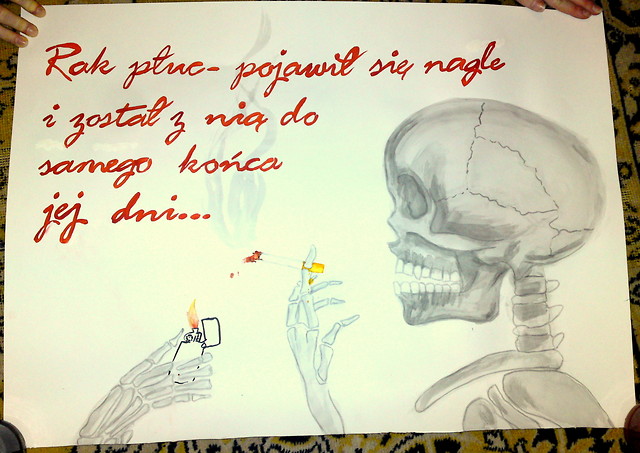 Rak płuc- pojawił się nagle
i został z nią do
samego końca
jej dni...